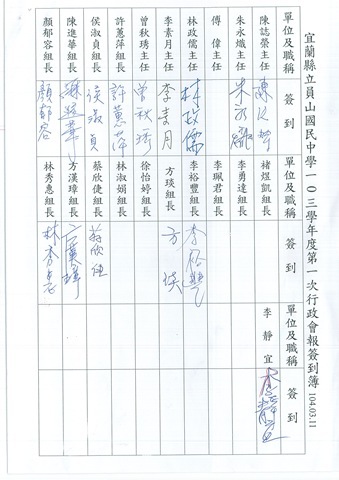 宜蘭縣立員山國民中學一０三學年度第一次行政會報簽到簿 104.03.11
單位及職稱 簽到 單位及職稱 簽到 單位及職稱 簽到
陳誌榮主任 褚煜凱組長 李靜宜 李靜宜
朱永熾主任 李勇達組長
傅偉主任 李珮君組長
林政儒主任 林政儒 李裕豐組長 李裕豐
李素月主任 李素月 方琰組長 方琰
曾秋琇主任 曾秋琇 徐怡婷組長
許蕙萍組長 許蕙萍 林淑娟組長
侯淑貞組長 侯淑貞 蔡欣倢組長 蔡欣倢
陳進華組長 陳進華 方漢璋組長 方漢璋
顏郁容組長 顏郁容 林秀惠組長 林秀惠